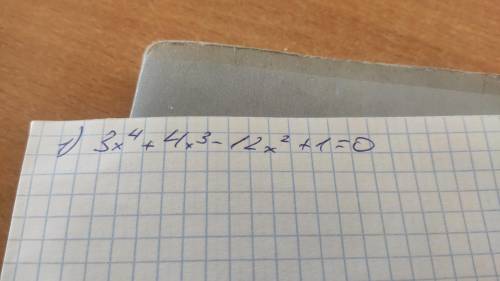 1) 3x⁴+4x³-12x²+1=0